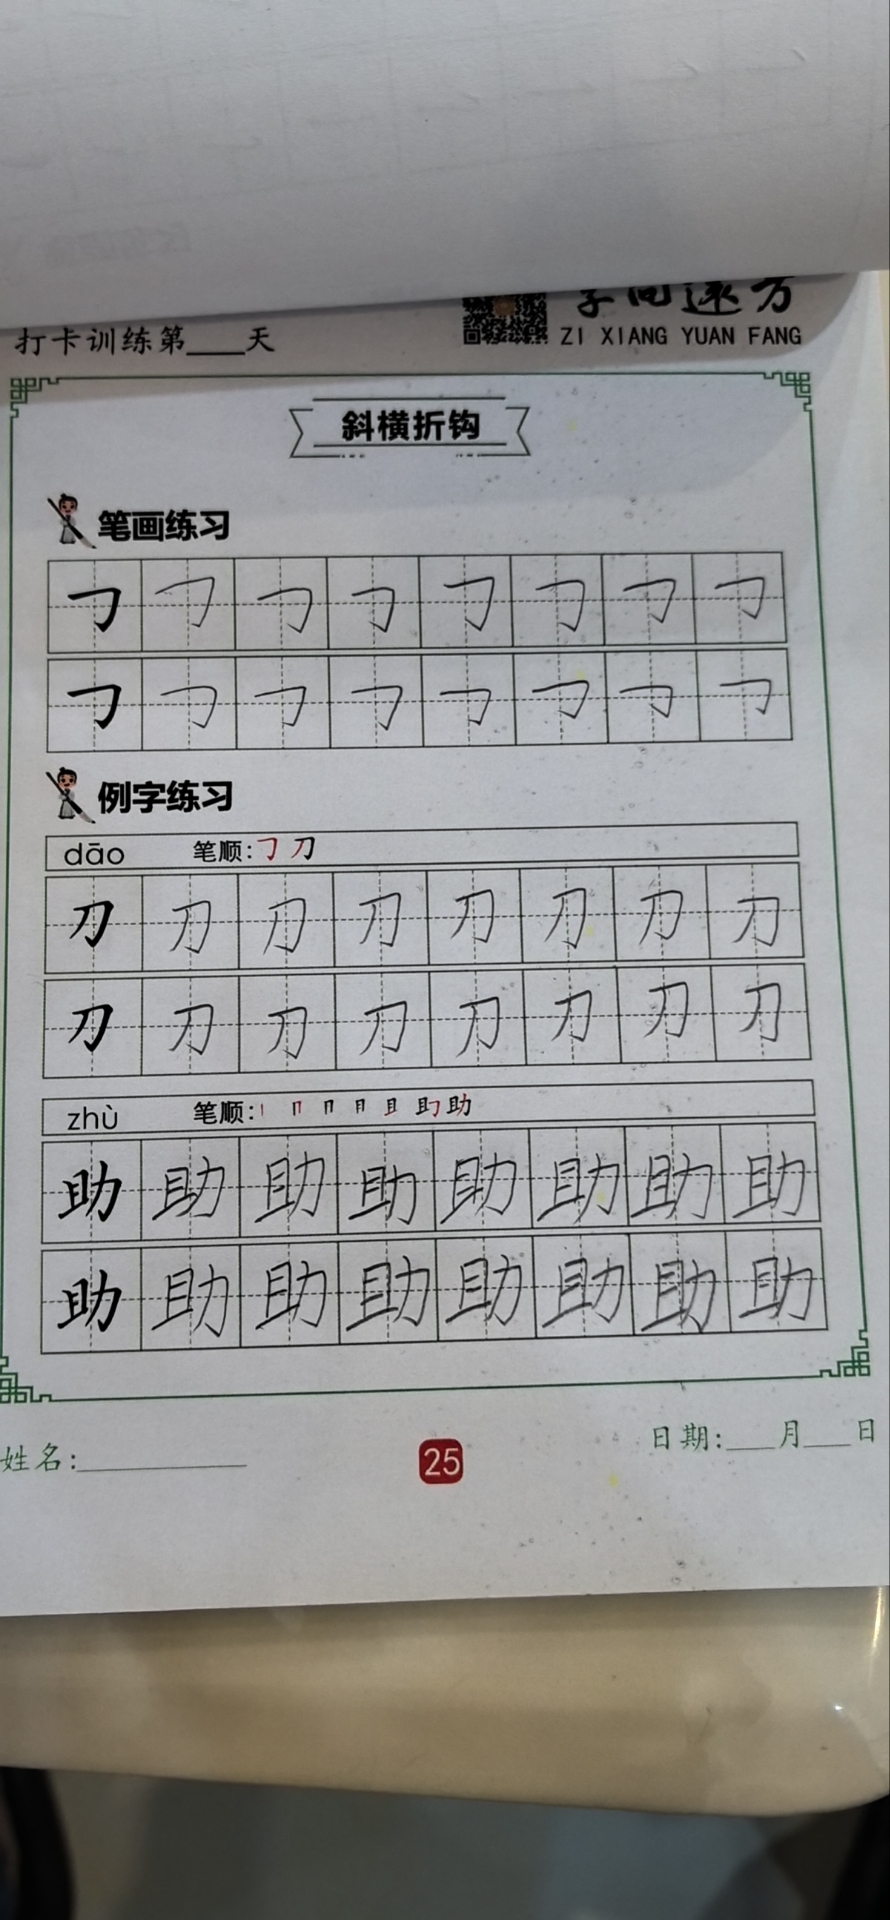 字向远方
打卡训练第___天
ZI XIANG YUAN FANG
斜横折钩
笔画练习
㇆ ㇆ ㇆ ㇆ ㇆ ㇆ ㇆ ㇆
㇆ ㇆ ㇆ ㇆ ㇆ ㇆ ㇆ ㇆
例字练习
dāo 笔顺:㇆ 刀
刀 刀 刀 刀 刀 刀 刀 刀
刀 刀 刀 刀 刀 刀 刀 刀
zhù 笔顺:丨 冂 冂 月 且 助 助
助 助 助 助 助 助 助 助
助 助 助 助 助 助 助 助
姓名:__________ 25 日期:___月___日